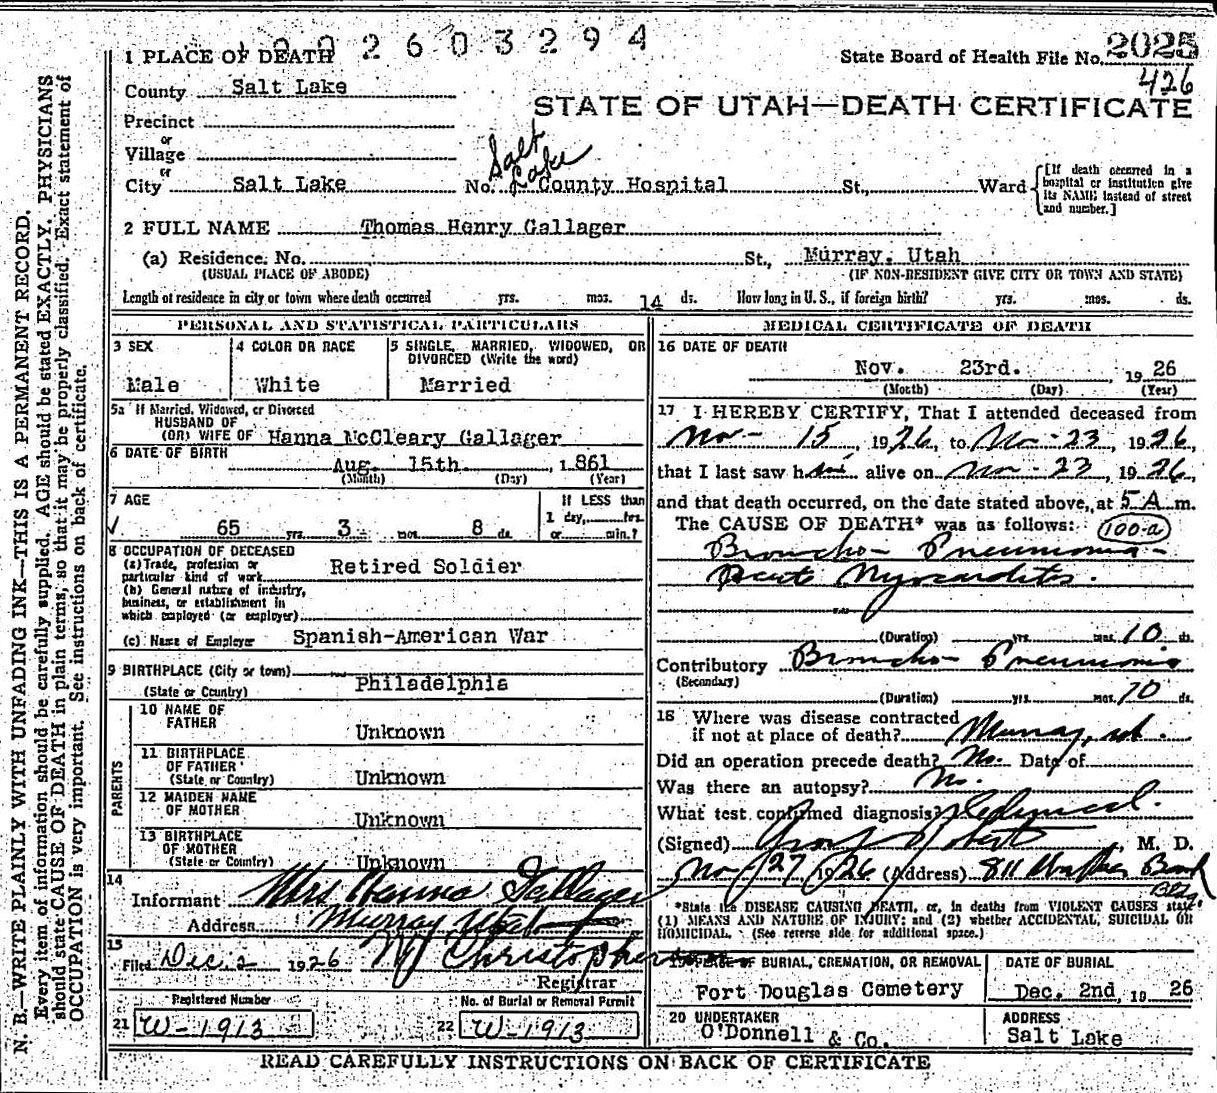 1002603294
1 PLACE OF DEATH
State Board of Health File No. 2025
426
County Salt Lake
STATE OF UTAH—DEATH CERTIFICATE
Precinct
or
Village
or
City Salt Lake No. Salt Lake County Hospital St., Ward
[If death occurred in a hospital or institution give its NAME instead of street and number.]
2 FULL NAME Thomas Henry Gallager
(a) Residence. No. St., Murray, Utah
(USUAL PLACE OF ABODE) (IF NON-RESIDENT GIVE CITY OR TOWN AND STATE)
Length of residence in city or town where death occurred yrs. mos. 14 ds. How long in U.S., if foreign birth? yrs. mos. ds.
PERSONAL AND STATISTICAL PARTICULARS
3 SEX
Male
4 COLOR OR RACE
White
5 SINGLE, MARRIED, WIDOWED, OR
DIVORCED (Write the word)
Married
5a If Married, Widowed, or Divorced
HUSBAND OF
(OR) WIFE OF Hanna McCleary Gallager
6 DATE OF BIRTH
Aug. 15th. 1861
(Month) (Day) (Year)
7 AGE
65 yrs. 3 mos. 8 ds.
If LESS than
1 day, hrs.
or min.?
8 OCCUPATION OF DECEASED
(a) Trade, profession or
particular kind of work Retired Soldier
(b) General nature of industry,
business, or establishment in
which employed (or employer)
(c) Name of Employer Spanish-American War
9 BIRTHPLACE (City or town)
(State or Country) Philadelphia
PARENTS
10 NAME OF
FATHER Unknown
11 BIRTHPLACE
OF FATHER
(State or Country) Unknown
12 MAIDEN NAME
OF MOTHER Unknown
13 BIRTHPLACE
OF MOTHER
(State or Country) Unknown
14
Informant Mrs Hanna Gallager
Address Murray Utah
15
Filed Dec. 2 1926 W J Christopherson
Registrar
Registered Number
21 W-1913
No. of Burial or Removal Permit
22 W-1913
MEDICAL CERTIFICATE OF DEATH
16 DATE OF DEATH
Nov. 23rd. , 1926
(Month) (Day) (Year)
17 I HEREBY CERTIFY, That I attended deceased from
Nov- 15, 1926, to Nov-23, 1926,
that I last saw him alive on Nov-23, 1926,
and that death occurred, on the date stated above, at 5 A m.
The CAUSE OF DEATH* was as follows: 100-a
Broncho- Pneumonia-
Acute Myocarditis.
(Duration) yrs. mos. 10 ds.
Contributory Broncho- Pneumonia
(Secondary)
(Duration) yrs. mos. 10 ds.
18 Where was disease contracted
if not at place of death? Murray, ut.
Did an operation precede death? No. Date of
Was there an autopsy? No.
What test confirmed diagnosis?
(Signed) , M. D.
Nov 27 1926 (Address) 811 Walker Bank
Bldg
*State the DISEASE CAUSING DEATH, or, in deaths from VIOLENT CAUSES state
(1) MEANS AND NATURE OF INJURY; and (2) whether ACCIDENTAL, SUICIDAL OR
HOMICIDAL. (See reverse side for additional space.)
19 PLACE OF BURIAL, CREMATION, OR REMOVAL
Fort Douglas Cemetery
DATE OF BURIAL
Dec. 2nd, 1926
20 UNDERTAKER
O'Donnell & Co.
ADDRESS
Salt Lake
READ CAREFULLY INSTRUCTIONS ON BACK OF CERTIFICATE
N. B.—WRITE PLAINLY WITH UNFADING INK—THIS IS A PERMANENT RECORD.
Every item of information should be carefully supplied. AGE should be stated EXACTLY. PHYSICIANS
should state CAUSE OF DEATH in plain terms, so that it may be properly classified. Exact statement of
OCCUPATION is very important. See instructions on back of certificate.